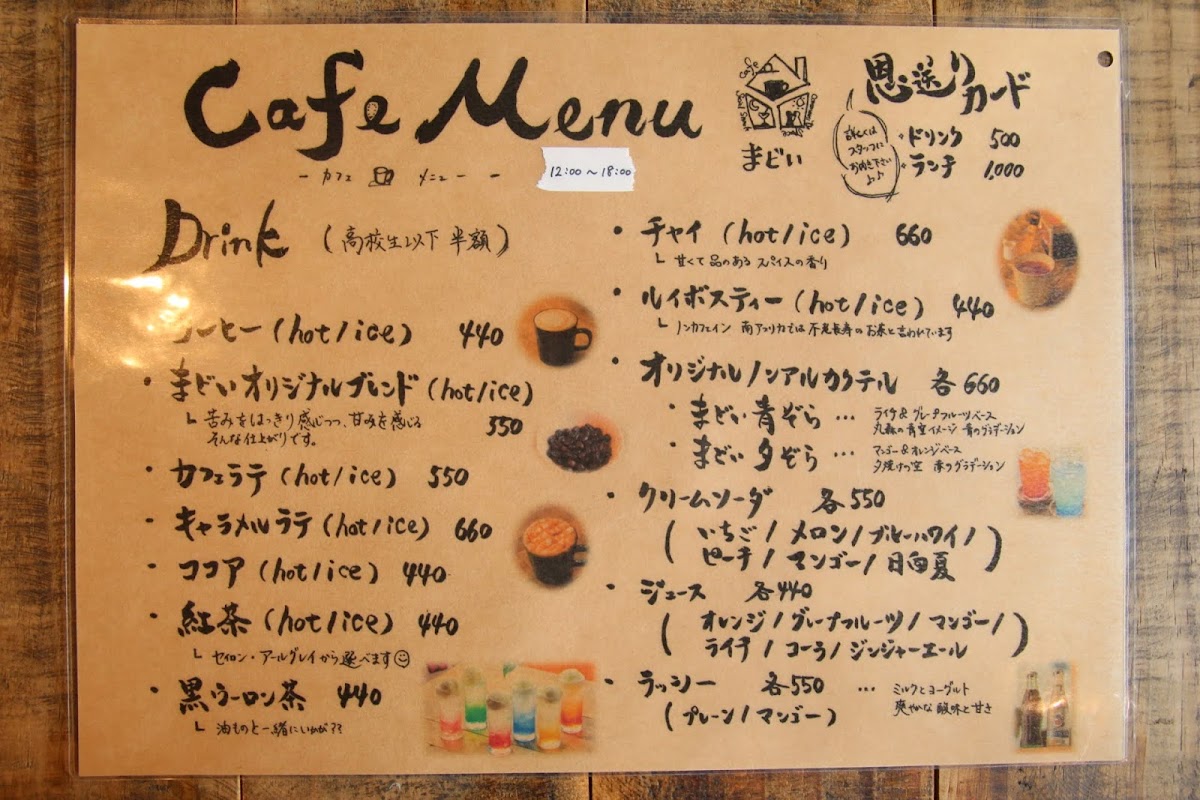 Cafe Menu
- カフェ メニュー -
12:00〜18:00
cafe
まどい
恩送りカード
詳しくは
スタッフに
お聞き下さい♪♪
・ドリンク 500
・ランチ 1,000
Drink (高校生以下 半額)
コーヒー(hot/ice) 440
・まどいオリジナルブレンド(hot/ice)
苦みをはっきり感じつつ、甘みを感じる 550
そんな仕上がりです。
・カフェラテ(hot/ice) 550
・キャラメルラテ(hot/ice) 660
・ココア(hot/ice) 440
・紅茶(hot/ice) 440
セイロン・アールグレイから選べます
・黒ウーロン茶 440
油ものと一緒にいかが??
・チャイ(hot/ice) 660
甘くて品のあるスパイスの香り
・ルイボスティー(hot/ice) 440
ノンカフェイン 南アフリカでは不老長寿のお茶と言われています
・オリジナルノンアルカクテル 各660
・まどい青ぞら … ライチ&グレープフルーツベース
丸森の青空イメージ 青のグラデーション
・まどい夕ぞら … マンゴー&オレンジベース
夕焼けの空 赤のグラデーション
・クリームソーダ 各550
(いちご/メロン/ブルーハワイ/
ピーチ/マンゴー/日向夏)
・ジュース 各440
(オレンジ/グレープフルーツ/マンゴー/
ライチ/コーラ/ジンジャーエール)
・ラッシー 各550 … ミルクとヨーグルト
(プレーン/マンゴー) 爽やかな酸味と甘さ